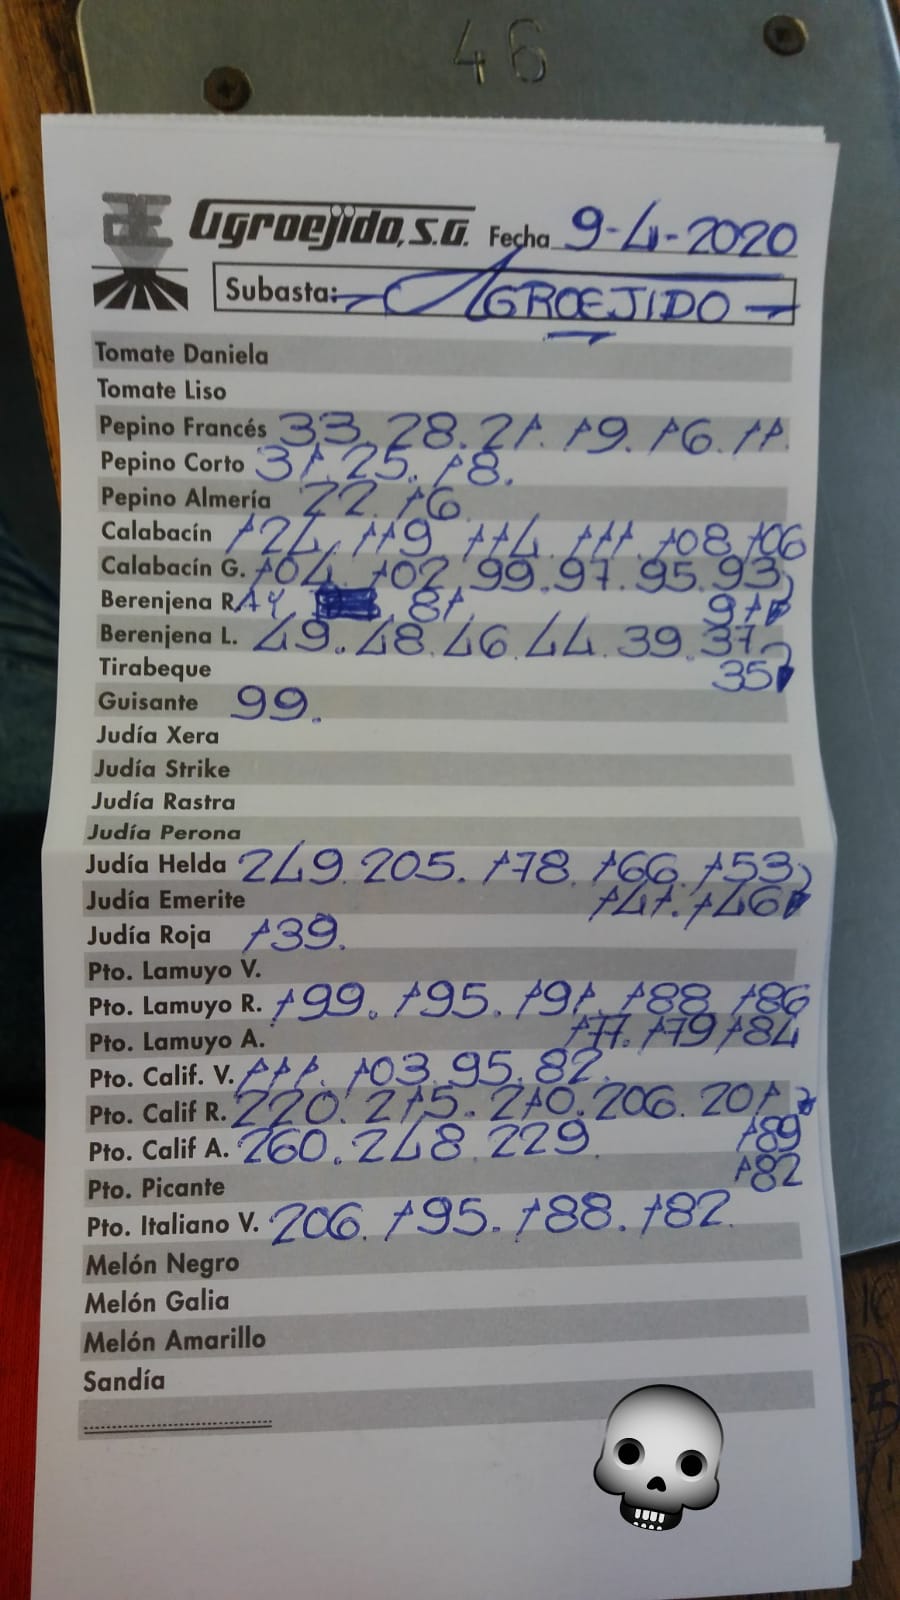 46
Agroejido, S.A. Fecha 9-4-2020
Subasta: AGROEJIDO
Tomate Daniela
Tomate Liso
Pepino Francés 33. 28. 21. 19. 16. 11.
Pepino Corto 31. 25. 18.
Pepino Almería 22. 16
Calabacín 124. 119 114. 111. 108 106
Calabacín G. 104. 102 99. 97. 95. 93
Berenjena R 81 91
Berenjena L. 49. 48. 46. 44. 39. 37
Tirabeque 35
Guisante 99.
Judía Xera
Judía Strike
Judía Rastra
Judía Perona
Judía Helda 249. 205. 178. 166. 153
Judía Emerite 147. 146
Judía Roja 139.
Pto. Lamuyo V.
Pto. Lamuyo R. 199. 195. 191. 188 186
Pto. Lamuyo A. 177. 179 184
Pto. Calif. V. 111. 103. 95. 82.
Pto. Calif R. 220. 215. 210. 206. 201
Pto. Calif A. 260. 248. 229 189
Pto. Picante 182
Pto. Italiano V. 206. 195. 188. 182.
Melón Negro
Melón Galia
Melón Amarillo
Sandía